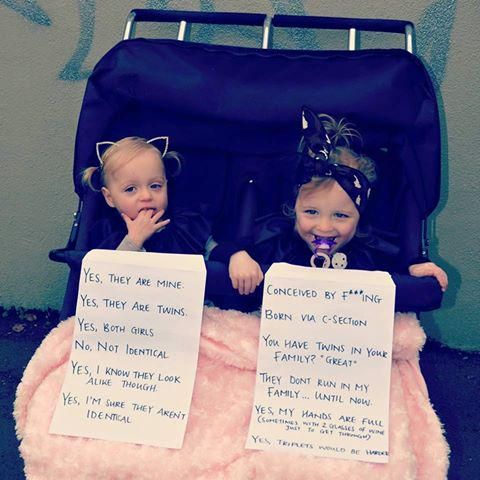 YES, THEY ARE MINE.
YES, THEY ARE TWINS.
YES, BOTH GIRLS
NO, NOT IDENTICAL
YES, I KNOW THEY LOOK
ALIKE THOUGH.
YES, I'M SURE THEY ARENT
IDENTICAL
CONCEIVED BY F***ING
BORN VIA C-SECTION
YOU HAVE TWINS IN YOUR
FAMILY? "GREAT"
THEY DONT RUN IN MY
FAMILY... UNTIL NOW.
YES, MY HANDS ARE FULL
(SOMETIMES WITH 2 GLASSES OF WINE
JUST TO GET THROUGH)
YES, TRIPLETS WOULD BE HARDER